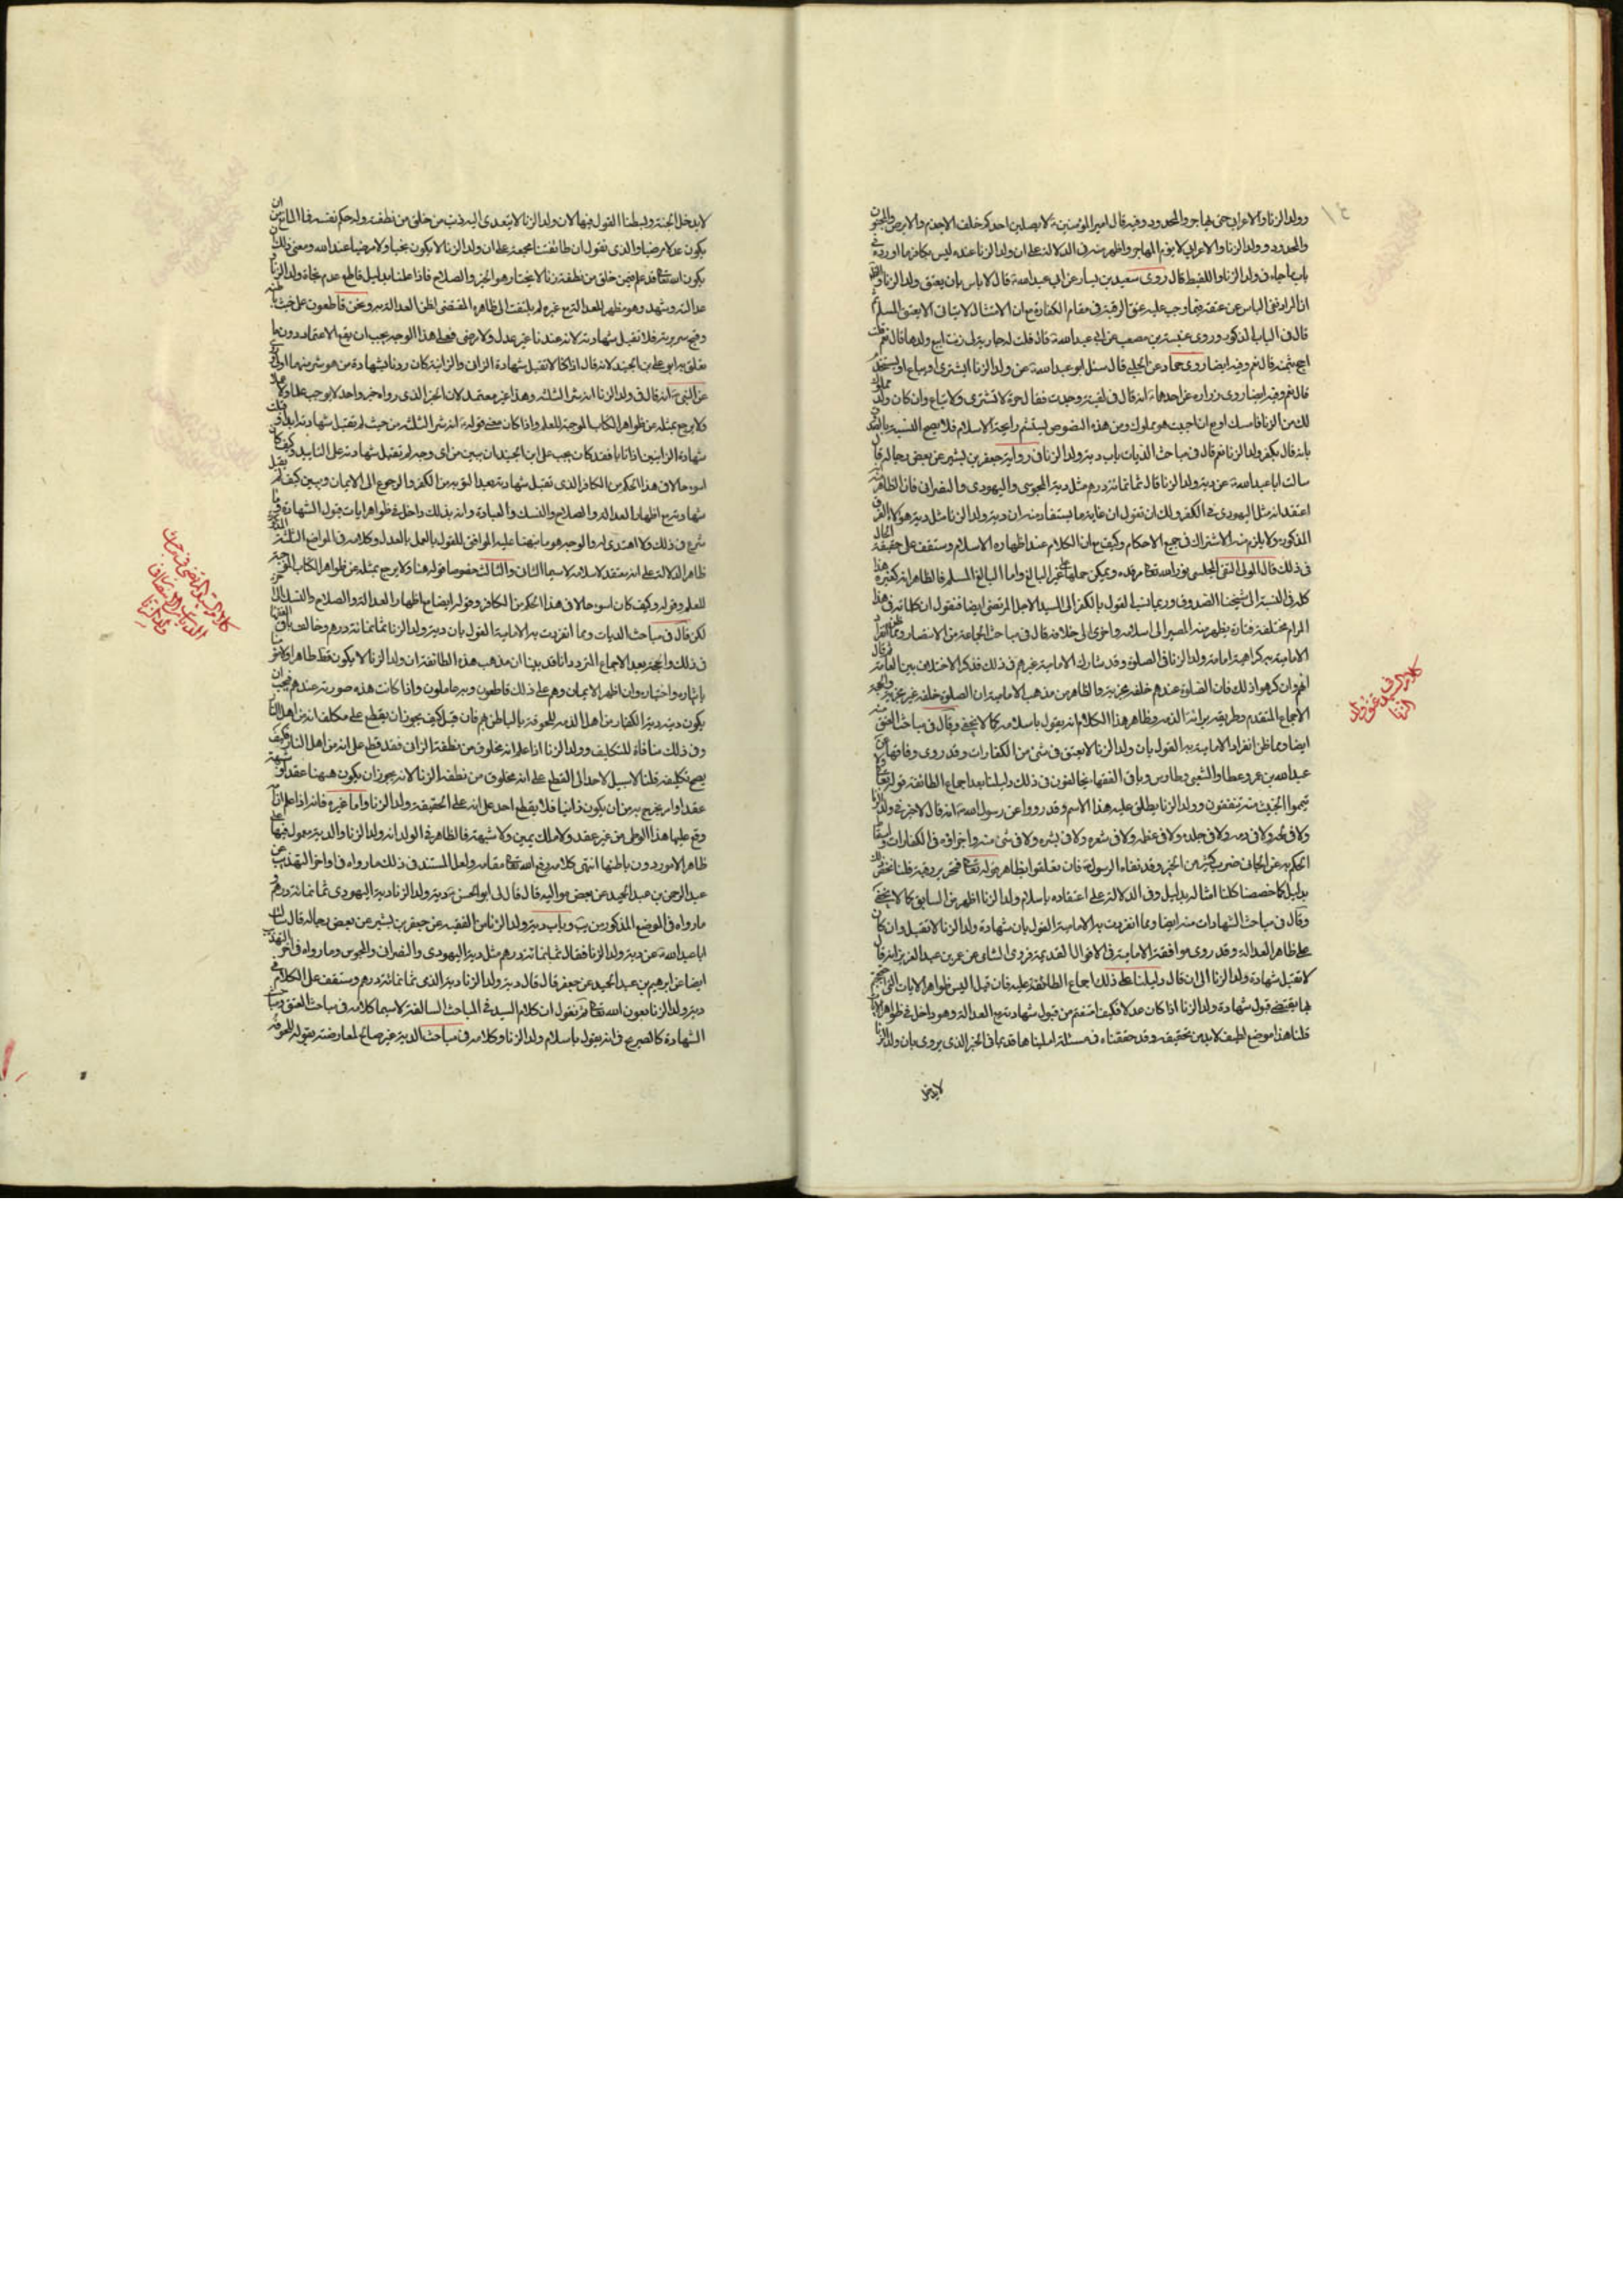 وولد الزنا والاعرابي حتى يهاجر والمحدود وفيه قال امير المؤمنين لا يصلين احدكم خلف الاجذم والابرص والمجنون
والمحدود وولد الزنا والاعرابي لا يؤم المهاجر واظهر منه في الدلالة على ان ولد الزنا عنده ليس بكافر ما اورده في
باب ما جاء في ولد الزنا واللقيط قال روى سعيد بن يسار عن ابي عبد الله قال لا باس بان يعتق ولد الزنا
قال في الباب المذكور وروى عنبسة بن مصعب عن ابي عبد الله قال قلت له جارية لي زنت ابيع ولدها قال نعم قلت
احج بثمنه قال نعم وفيه ايضا روى حماد عن الحلبي قال سئل ابو عبد الله عن ولد الزنا ايشترى او يباع او يستخدم
قال نعم وفيه ايضا روى زرارة عن احدهما انه قال في لقيطة وجدت فقال حرة لا تشترى ولا تباع وان كان ولد مملوك
لك من الزنا فامسك او بع ان احببت هو مملوك ومن هذه النصوص رايحة الاسلام فلا يصح النسبة
بانه قال بكفر ولد الزنا نعم قال في مباحث الديات باب دية ولد الزنا في رواية جعفر بن بشير عن بعض رجاله قال
سالت ابا عبد الله عن دية ولد الزنا قال ثمانمائة درهم مثل دية المجوسي واليهودي والنصراني فان الظاهر منه
اعتقد انه مثل اليهودي في الكفر ولك ان تقول ان غاية ما يستفاد منه ان دية ولد الزنا مثل دية هؤلاء
المذكورة ولا يلزم منه الاشتراك في جميع الاحكام وكيف مع ان الكلام عند اظهاره الاسلام وستقف على حقيقة الحال
في ذلك قال المولى التقي المجلسي نور الله تعالى مرقده ويمكن حملها على غير البالغ واما البالغ المسلم فالظاهر انه كغيره هذا
كله في النسبة الى شيخنا الصدوق وربما نسب القول بالكفر الى السيد الاجل المرتضى ايضا فنقول ان كلماته في هذا
المرام مختلفة فتارة يظهر منه المصير الى اسلامه واخرى الى خلافه قال في مباحث الجماعة من الانتصار ومما ظن انفراد
الامامية به كراهية امامة ولد الزنا في الصلوة وقد شارك الامامية غيرهم في ذلك فذكر الاختلاف بين العامة ثم قال
انهم وان كرهوا ذلك فان الصلوة عندهم خلفه مجزية والظاهر من مذهب الامامية ان الصلوة خلفه غير مجزية والحجة
الاجماع المتقدم وطريقة براءة الذمة وظاهر هذا الكلام انه يقول باسلامه كما لا يخفى وقال في مباحث العتق منه
ايضا ومما ظن انفراد الامامية به القول بان ولد الزنا لا يعتق في شئ من الكفارات وقد روى وفاقها عن
عبد الله بن عمرو عطا والشعبي وطاوس وباقي الفقهاء يخالفون في ذلك دليلنا بعد اجماع الطائفة قوله تعالى ولا
تيمموا الخبيث منه تنفقون وولد الزنا يطلق عليه هذا الاسم وقد رووا عن رسول الله انه قال لا خير في ولد الزنا
ولا في لحمه ولا في دمه ولا في جلده ولا في عظمه ولا في شعره ولا في بشره ولا في شئ منه واجزاؤه في الكفارات واسقاط
الحكم به عن الجاني ضرب كثير من الخير وقد نفاه الرسول فان تعلقوا بظاهر قوله تعالى فتحرير رقبة قلنا نخص ذلك
بدليل كما خصصنا كلنا امثاله بدليل وفي الدلالة على اعتقاده باسلام ولد الزنا اظهر من السابق كما لا يخفى
وقال في مباحث الشهادات منه ايضا ومما انفردت به الامامية القول بان شهادة ولد الزنا لا تقبل وان كان
على ظاهر العدالة وقد روى موافقة الامامية في الاقوال القديمة فروى الشامي عن عمر بن عبد العزيز انه قال
لا تقبل شهادة ولد الزنا الى ان قال دليلنا على ذلك اجماع الطائفة عليه فان قيل اليس ظواهر الايات التي احتججتم
بها يقتضي قبول شهادة ولد الزنا اذا كان عدلا فكيف امتنعتم من قبول شهادته مع العدالة وهو داخل في ظواهر الايات
قلنا هذا موضع لطيف لا بد من تحقيقه وقد حققناه في مسئلة امليناها قديما في الخبر الذي يروى بان ولد الزنا
لا يدخل
كلام السيد في عتق ولد
الزنا
لا يدخل الجنة وبسطنا القول فيها لان ولد الزنا لا يتعدى اليه ذنب من خلق من نطفته وله حكم نفسه فما المانع من ان
يكون عدلا مرضيا والذي نقول ان طائفتنا مجمعة على ان ولد الزنا لا يكون نجيبا ولا مرضيا عند الله ومعنى ذلك ان
يكون الله تعالى قد علم فيمن خلق من نطفة زنا لا يختار هو الخير والصلاح فاذا علمنا بدليل قاطع عدم نجابة ولد الزنا
عدالته وشهد وهو مظهر للعدالة مع غيره لم يلتفت الى ظاهره المقتضي لظن العدالة به ونحن قاطعون على خبث باطنه
وقبح سريرته فلا تقبل شهادته لانه عندنا غير عدل ولا مرضي فعلى هذا الوجه يجب ان يقع الاعتماد دون ما
تعلق به ابو علي بن الجنيد لانه قال اذا كنا لا نقبل شهادة الزاني والزانية كان ردنا لشهادة من هو شر منهما اولى
عن النبي انه قال في ولد الزنا انه شر الثلثة وهذا غير معتمد لان الخبر الذي رواه خبر واحد لا يوجب علما ولا عملا
ولا يرجع بمثله عن ظواهر الكتاب الموجبة للعلم واذا كان معنى قوله انه شر الثلثة من حيث لم تقبل شهادته ابدا وقبلت
شهادة الزانيين اذا تابا فقد كان يجب على ابن الجنيد ان يبين من اي وجه لم تقبل شهادته على التابيد وكيف كان
اسوء حالا في هذا الحكم من الكافر الذي تقبل شهادته بعد التوبة من الكفر والرجوع الى الايمان ويبين كيف لم تقبل
شهادته مع اظهار العدالة والصلاح والنسك والعبادة وانه بذلك داخل في ظواهر ايات قبول الشهادة
شرع في ذلك ولا اهتدى له والوجه هو ما نبهنا عليه الموافق للقول بالعمل بالعدل وكلامه في المواضع الثلثة
ظاهر الدلالة على انه معتقد لاسلامه لا سيما الثاني والثالث خصوصا قوله هنا ولا يرجع بمثله عن ظواهر الكتاب الموجبة
للعلم وقوله وكيف كان اسوء حالا في هذا الحكم من الكافر وقوله ايضا مع اظهار العدالة والصلاح والنسك الى
لكن قال في مباحث الديات ومما انفردت به الامامية القول بان دية ولد الزنا ثمانمائة درهم وخالف باقي الفقهاء
في ذلك والحجة بعد الاجماع المتردد انا قد بينا ان مذهب هذه الطائفة ان ولد الزنا لا يكون قط طاهرا ولا مؤمنا
بايثاره واختياره وان اظهر الايمان وهم على ذلك قاطعون وبه عاملون واذا كانت هذه صورته عندهم فيجب ان
يكون ديته دية الكفار من اهل الذمة للحوقه بالباطن بهم فان قيل كيف يجوز ان يقطع على مكلف انه من اهل النار
وفي ذلك منافاة للتكليف وولد الزنا اذا علم انه مخلوق من نطفة الزاني فقد قطع على انه من اهل النار فكيف
يصح تكليفه قلنا لا سبيل لاحد الى القطع على انه مخلوق من نطفة الزنا لانه يجوز ان يكون هيهنا عقد او شبهة
عقد او امر يخرج به من ان يكون زانيا فلا يقطع احد على انه على الحقيقة ولد الزنا واما غيره فانه اذا علم ان امه
وقع عليها هذا الوطي من غير عقد ولا ملك يمين ولا شبهة فالظاهر في الولد انه ولد الزنا والدية معمول فيها على
ظاهر الامور دون باطنها انتهى كلامه رفع الله تعالى مقامه ولعل المستند في ذلك ما رواه في اواخر التهذيب عن
عبد الرحمن بن عبد الحميد عن بعض مواليه قال قال لي ابو الحسن دية ولد الزنا دية اليهودي ثمانمائة درهم
ما رواه في الموضع المذكور من يب وباب دية ولد الزنا من الفقيه عن جعفر بن بشير عن بعض رجاله قال سالت
ابا عبد الله عن دية ولد الزنا فقال ثمانمائة درهم مثل دية اليهودي والنصراني والمجوسي وما رواه في اخر التهذيب
ايضا عن ابراهيم بن عبد الحميد عن جعفر قال قال دية ولد الزنا دية الذمي ثمانمائة درهم وستقف على الكلام في
دية ولد الزنا بعون الله تعالى ثم نقول ان كلام السيد في المباحث السالفة لا سيما كلامه في مباحث العتق ومباحث
الشهادة كالصريح في انه يقول باسلام ولد الزنا وكلامه في مباحث الدية غير صالح لمعارضته بقوله للحوقه
كلام السيد المرتضى في مبحث